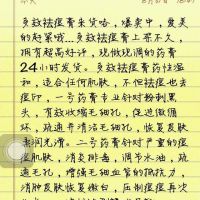 多效祛痘膏来货咯，爆卖中，爱美
的赶紧哦…多效祛痘膏上架不久，
拥有超高好评，现做现调的药膏
24小时发货。多效祛痘膏药性温
和，适合任何肌肤，不但祛痘也去
痘印，一号药膏专业针对粉刺黑
头，有效收缩毛孔，促进微循
环，疏通并清洁毛细孔，恢复皮肤
柔润光滑。二号药膏针对严重的痘
痘肌肤，消炎排毒，调节水油，疏
通毛孔，增强毛细血管的抵抗力，
清除皮肤恢复嫩白，后制痘痘再次